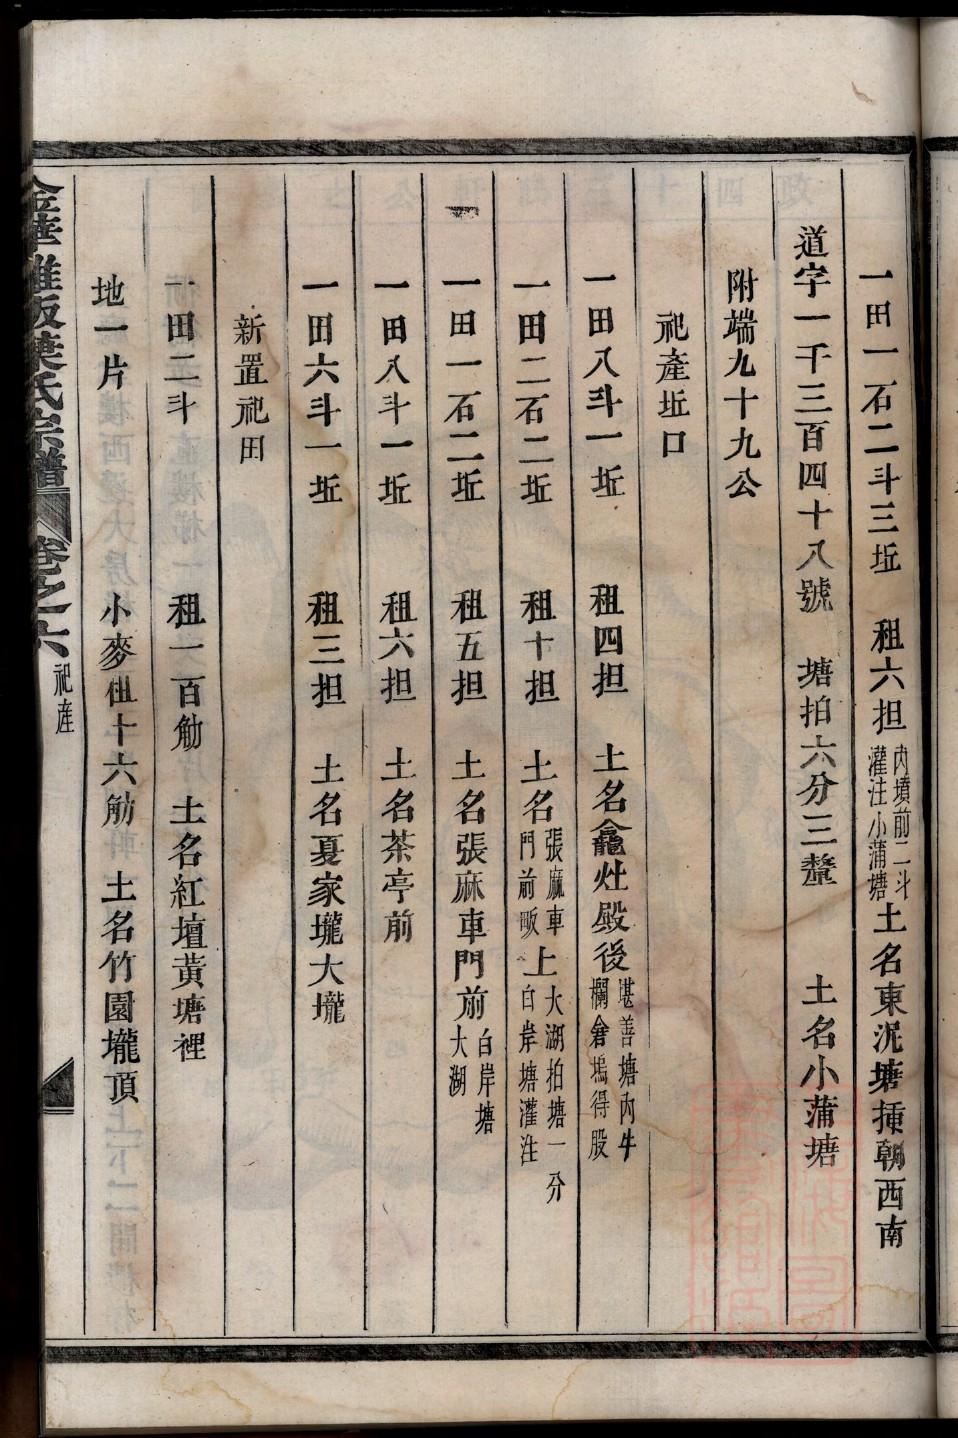 一田一石二斗三坵 租六担 內墳前二斗灌注小蒲塘 土名東泥塘挿朝西南
道字一千三百四十八號 塘拍六分三釐 土名小蒲塘
附端九十九公
祀產坵口
一田八斗一坵 租四担 土名龕灶殿後 堪善塘內牛欄倉塢得股
一田二石二坵 租十担 土名 張麻車門前畈 上 大湖拍塘一分白岸塘灌注
一田一石二坵 租五担 土名張麻車門前 白岸塘大湖
一田八斗一坵 租六担 土名茶亭前
一田六斗一坵 租三担 土名夏家壠大壠
新置祀田
一田二斗 租一百觔 土名紅壇黃塘裡
地一片 小麥租十六觔 土名竹園壠頂
金華雅畈葉氏宗譜 卷之六 祀產